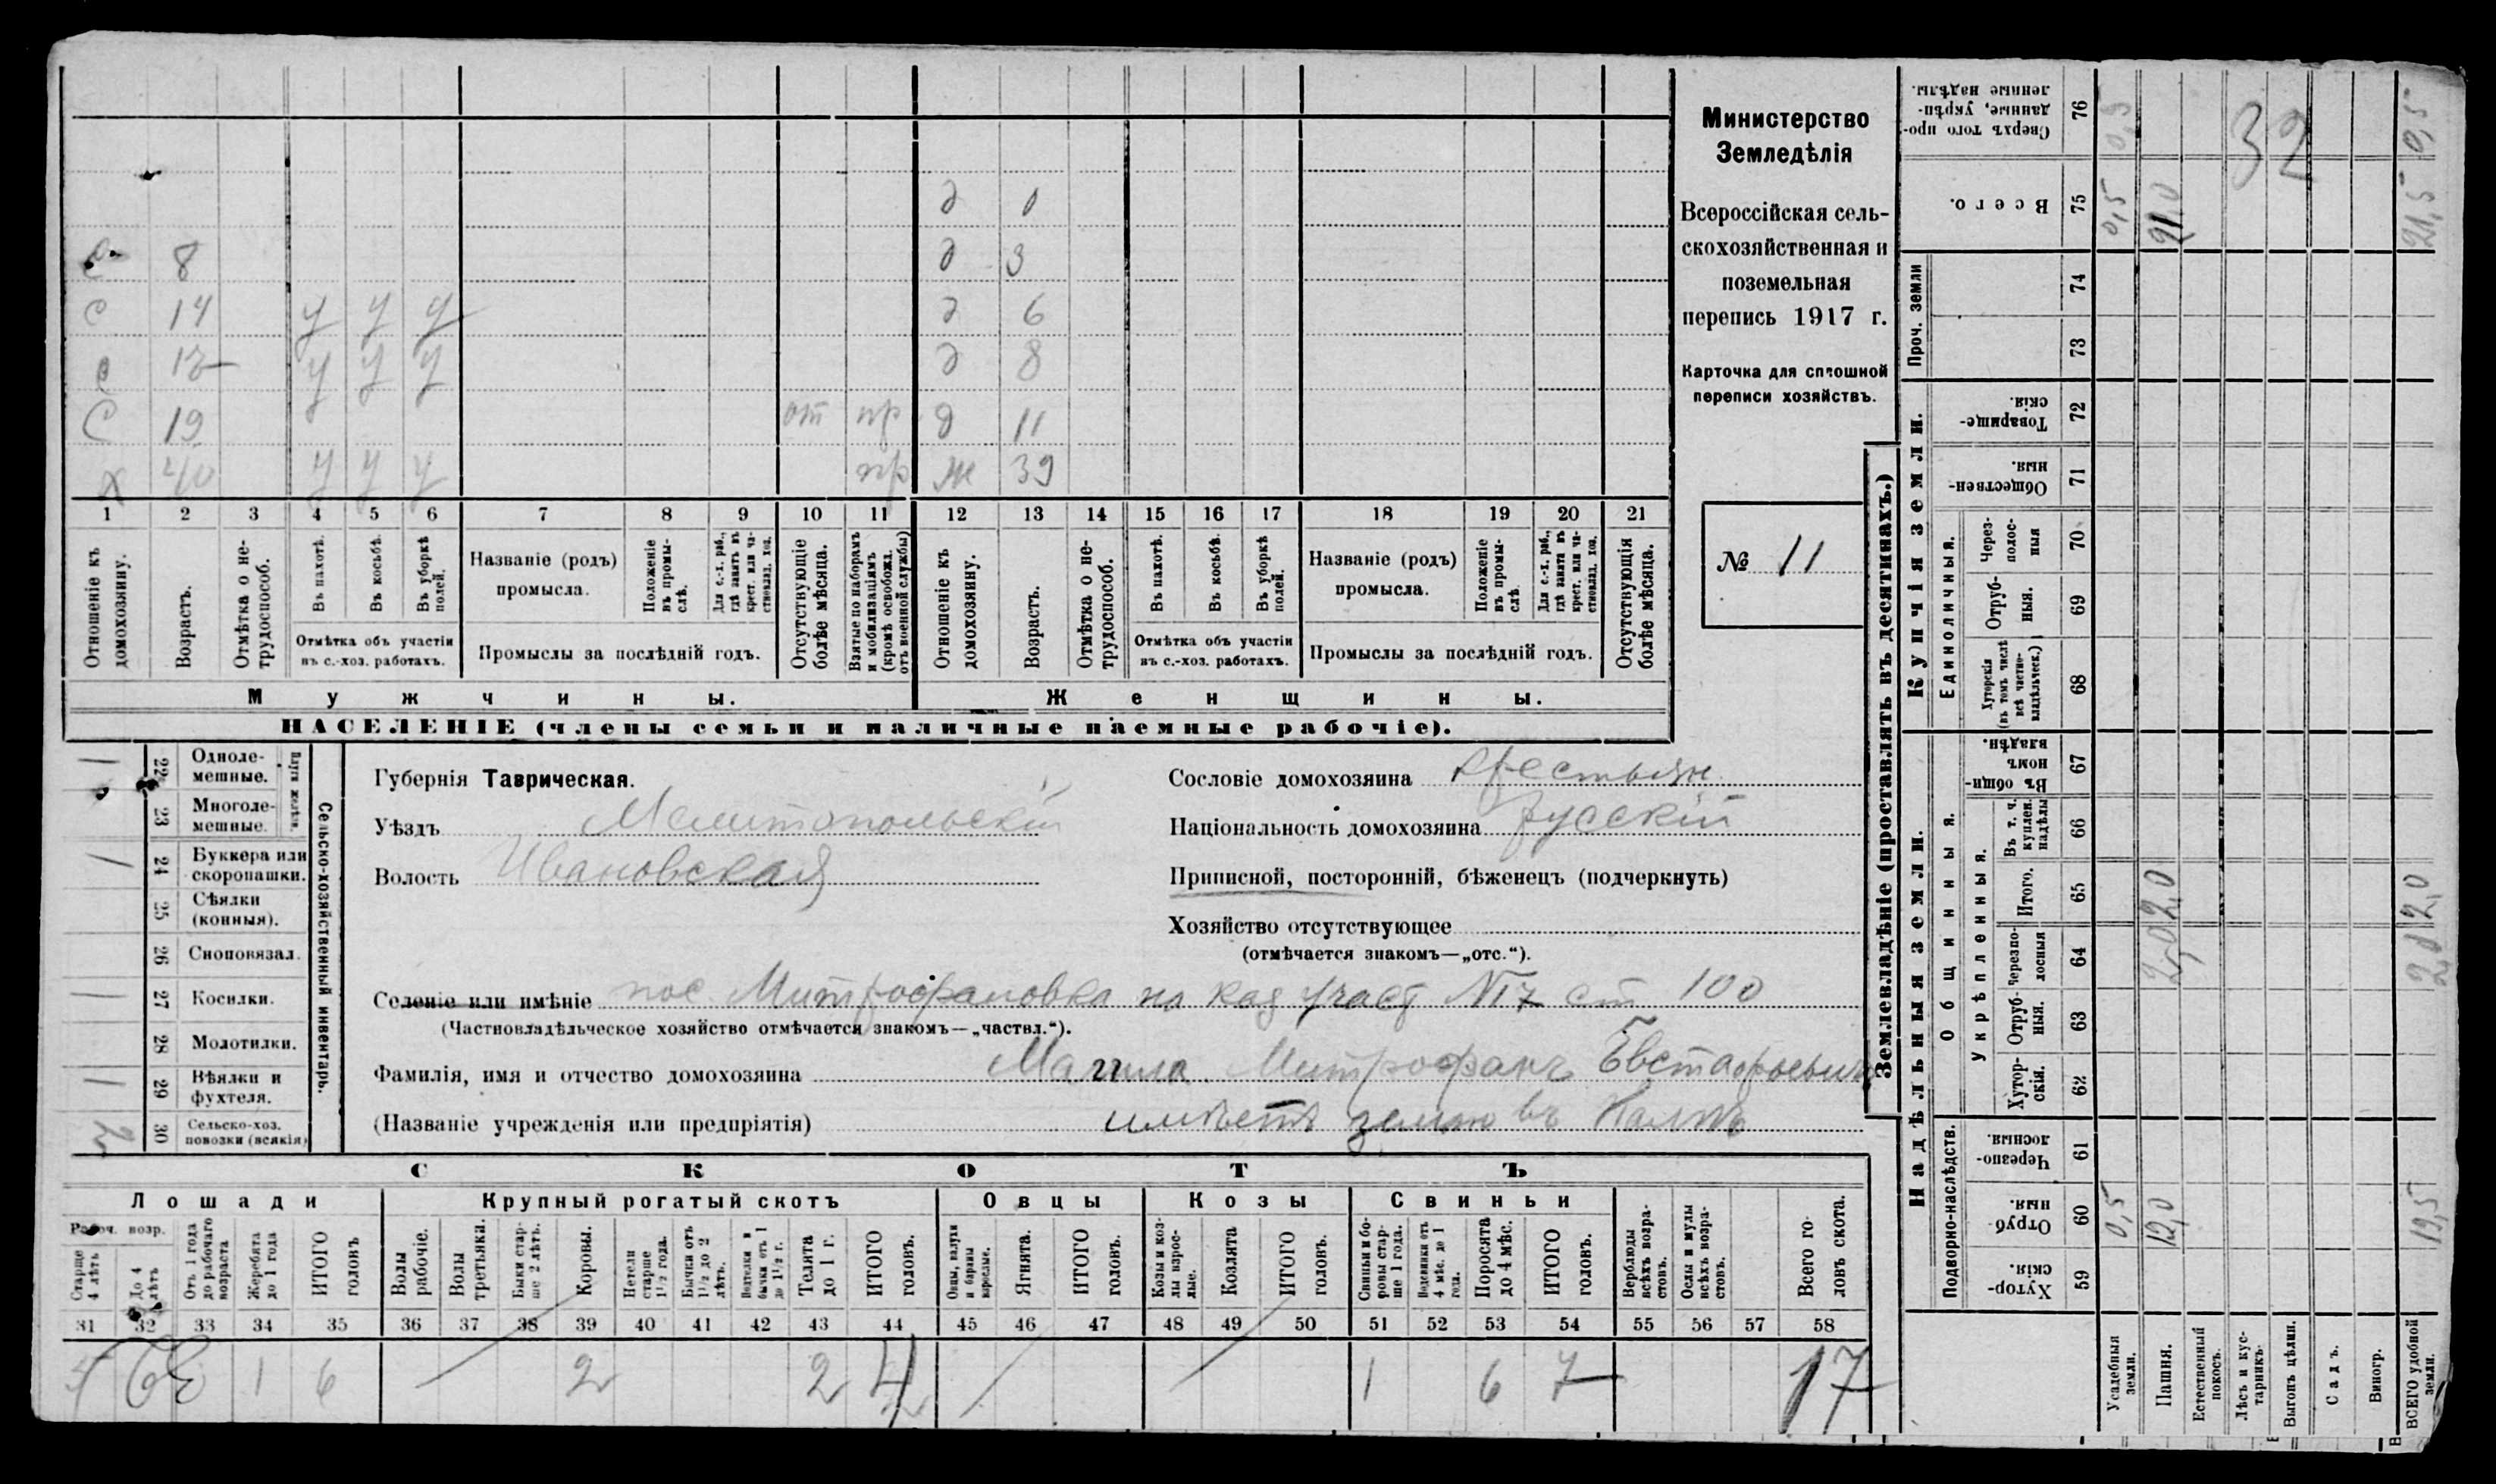 Министерство
Земледѣлія
Всероссійская сель-
скохозяйственная и
поземельная
перепись 1917 г.
Карточка для сплошной
переписи хозяйствъ.
№ 11
д 0
с 8 д 3
с 14 у у у д 6
с у у у д 8
с 19 от пр д 11
х 40 у у у пр ж 39
1 2 3 4 5 6 7 8 9 10 11 12 13 14 15 16 17 18 19 20 21
Отношеніе къ домохозяину.
Возрастъ.
Отмѣтка о не-трудоспособ.
Въ пахотѣ.
Въ косьбѣ.
Въ уборкѣ полей.
Отмѣтка объ участіи въ с.-хоз. работахъ.
Названіе (родъ) промысла.
Положеніе въ промы-слѣ.
Для с.-х. раб., гдѣ занятъ въ крест. или ча-стновлад. хоз.
Промыслы за послѣдній годъ.
Отсутствующіе болѣе мѣсяца.
Взятые по наборамъ и мобилизаціямъ (кромѣ освобожд. отъ военной службы)
Отношеніе къ домохозяину.
Возрастъ.
Отмѣтка о не-трудоспособ.
Въ пахотѣ.
Въ косьбѣ.
Въ уборкѣ полей.
Отмѣтка объ участіи въ с.-хоз. работахъ.
Названіе (родъ) промысла.
Положеніе въ промы-слѣ.
Для с.-х. раб., гдѣ занятъ въ крест. или ча-стновлад. хоз.
Промыслы за послѣдній годъ.
Отсутствующія болѣе мѣсяца.
Мужчины. Женщины.
НАСЕЛЕНІЕ (члены семьи и наличные наемные рабочіе).
Сельско-хозяйственный инвентарь.
Плуги желѣзн.
1 22 Одноле-мешные.
23 Многоле-мешные.
1 24 Буккера или скоропашки.
25 Сѣялки (конныя).
26 Сноповязал.
1 27 Косилки.
28 Молотилки.
1 29 Вѣялки и фухтеля.
30 Сельско-хоз. повозки (всякія)
Губернія Таврическая.
Уѣздъ Мелитопольскій
Волость Ивановская
Сословіе домохозяина Крестьян.
Національность домохозяина русскій
Приписной, посторонній, бѣженецъ (подчеркнуть)
Хозяйство отсутствующее
(отмѣчается знакомъ—„отс.“).
Селеніе или имѣніе пос Митрофановка на каз участ №7 ст 100
(Частновладѣльческое хозяйство отмѣчается знакомъ—„частвл.“).
Фамилія, имя и отчество домохозяина Магила Митрофанъ Евстафьевичъ
(Названіе учрежденія или предпріятія) имѣетъ землю въ
СКОТЪ
Лошади Крупный рогатый скотъ Овцы Козы Свиньи
Рабоч. возр.
Старше 4 лѣтъ
До 4 лѣтъ
Отъ 1 года до рабочаго возраста
Жеребята до 1 года
ИТОГО головъ
Волы рабочіе.
Волы третьяки.
Быки стар-ше 2 лѣтъ.
Коровы.
Нетели старше 1½ года.
Бычки отъ 1½ до 2 лѣтъ.
Телята до 1 г.
ИТОГО головъ.
Овцы, валухи и бараны взрослые.
Ягнята.
ИТОГО головъ.
Козы и коз-лы взрос-лые.
Козлята
ИТОГО головъ.
Свиньи и бо-ровы стар-ше 1 года.
Подсвинки отъ 4 мѣс. до 1 года.
Поросята до 4 мѣс.
ИТОГО головъ.
Верблюды всѣхъ возра-стовъ.
Ослы и мулы всѣхъ возра-стовъ.
Всего го-ловъ скота.
31 32 33 34 35 36 37 38 39 40 41 42 43 44 45 46 47 48 49 50 51 52 53 54 55 56 57 58
1 6 2 2 4 1 6 7 17
Землевладѣніе (проставлять въ десятинахъ.)
Надѣльныя земли. Купчія земли. Проч. земли
Подворно-наслѣдств. Общинныя. Укрѣпленныя. Единоличныя.
Хутор-скія. 59
Отруб-ныя. 60 0,5 12,0 19,5
Черезпо-лосныя. 61
Хутор-скія. 62
Отруб-ныя. 63
Черезпо-лосныя 64
Итого. 65
Въ т. ч. куплен. надѣлы 66
Въ общин-номъ владѣн. 67
Хуторскія (въ томъ числѣ всѣ частно-владѣльческ.) 68
Отруб-ныя. 69
Через-полос-ныя 70
Обществен-ныя. 71
Товарище-скія. 72
73
74
Всего. 75 0,5 21,0 21,5
Сверхъ того про-данные, укрѣп-ленные надѣлы. 76 0,5 0,5
32
Усадебныя земли.
Пашня.
Естественный покосъ.
Лѣсъ и кус-тарникъ.
Выгонъ цѣлин.
Садъ.
Виногр.
ВСЕГО удобной земли.